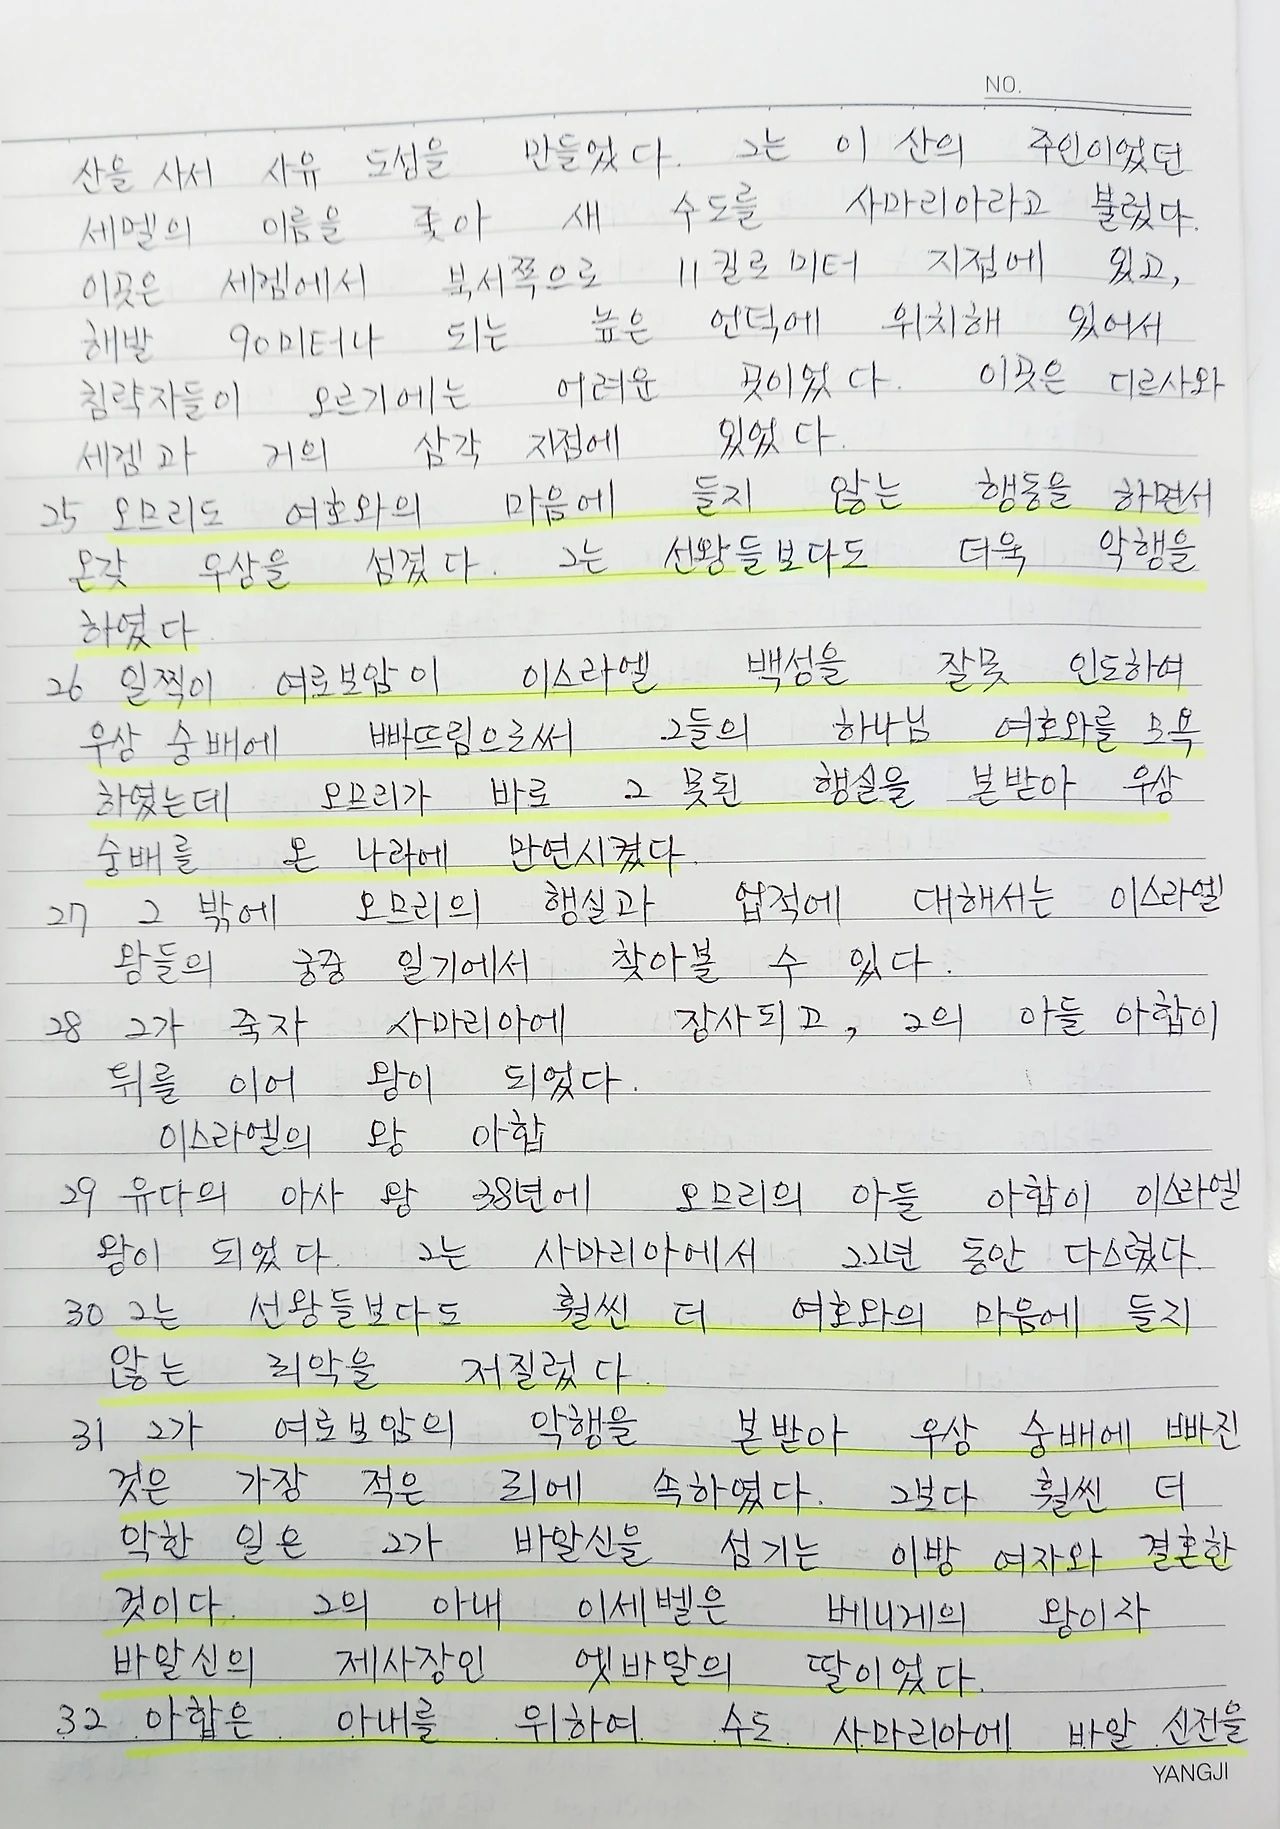 NO.
산을 사서 사유 도성을 만들었다. 그는 이 산의 주인이었던
세멜의 이름을 좇아 새 수도를 사마리아라고 불렀다.
이곳은 세겜에서 북서쪽으로 11킬로미터 지점에 있고,
해발 90미터나 되는 높은 언덕에 위치해 있어서
침략자들이 오르기에는 어려운 곳이었다. 이곳은 디르사와
세겜과 거의 삼각 지점에 있었다.
25 오므리도 여호와의 마음에 들지 않는 행동을 하면서
온갖 우상을 섬겼다. 그는 선왕들보다도 더욱 악행을
하였다
26 일찍이 여로보암이 이스라엘 백성을 잘못 인도하여
우상 숭배에 빠뜨림으로써 그들의 하나님 여호와를 모욕
하였는데 오므리가 바로 그 못된 행실을 본받아 우상
숭배를 온 나라에 만연시켰다.
27 그 밖에 오므리의 행실과 업적에 대해서는 이스라엘
왕들의 궁중 일기에서 찾아볼 수 있다.
28 그가 죽자 사마리아에 장사되고, 그의 아들 아합이
뒤를 이어 왕이 되었다.
이스라엘의 왕 아합
29 유다의 아사 왕 38년에 오므리의 아들 아합이 이스라엘
왕이 되었다. 그는 사마리아에서 22년 동안 다스렸다.
30 그는 선왕들보다도 훨씬 더 여호와의 마음에 들지
않는 죄악을 저질렀다.
31 그가 여로보암의 악행을 본받아 우상 숭배에 빠진
것은 가장 적은 죄에 속하였다. 그보다 훨씬 더
악한 일은 그가 바알신을 섬기는 이방 여자와 결혼한
것이다. 그의 아내 이세벨은 베니게의 왕이자
바알신의 제사장인 엣바알의 딸이었다.
32 아합은 아내를 위하여 수도 사마리아에 바알 신전을
YANGJI